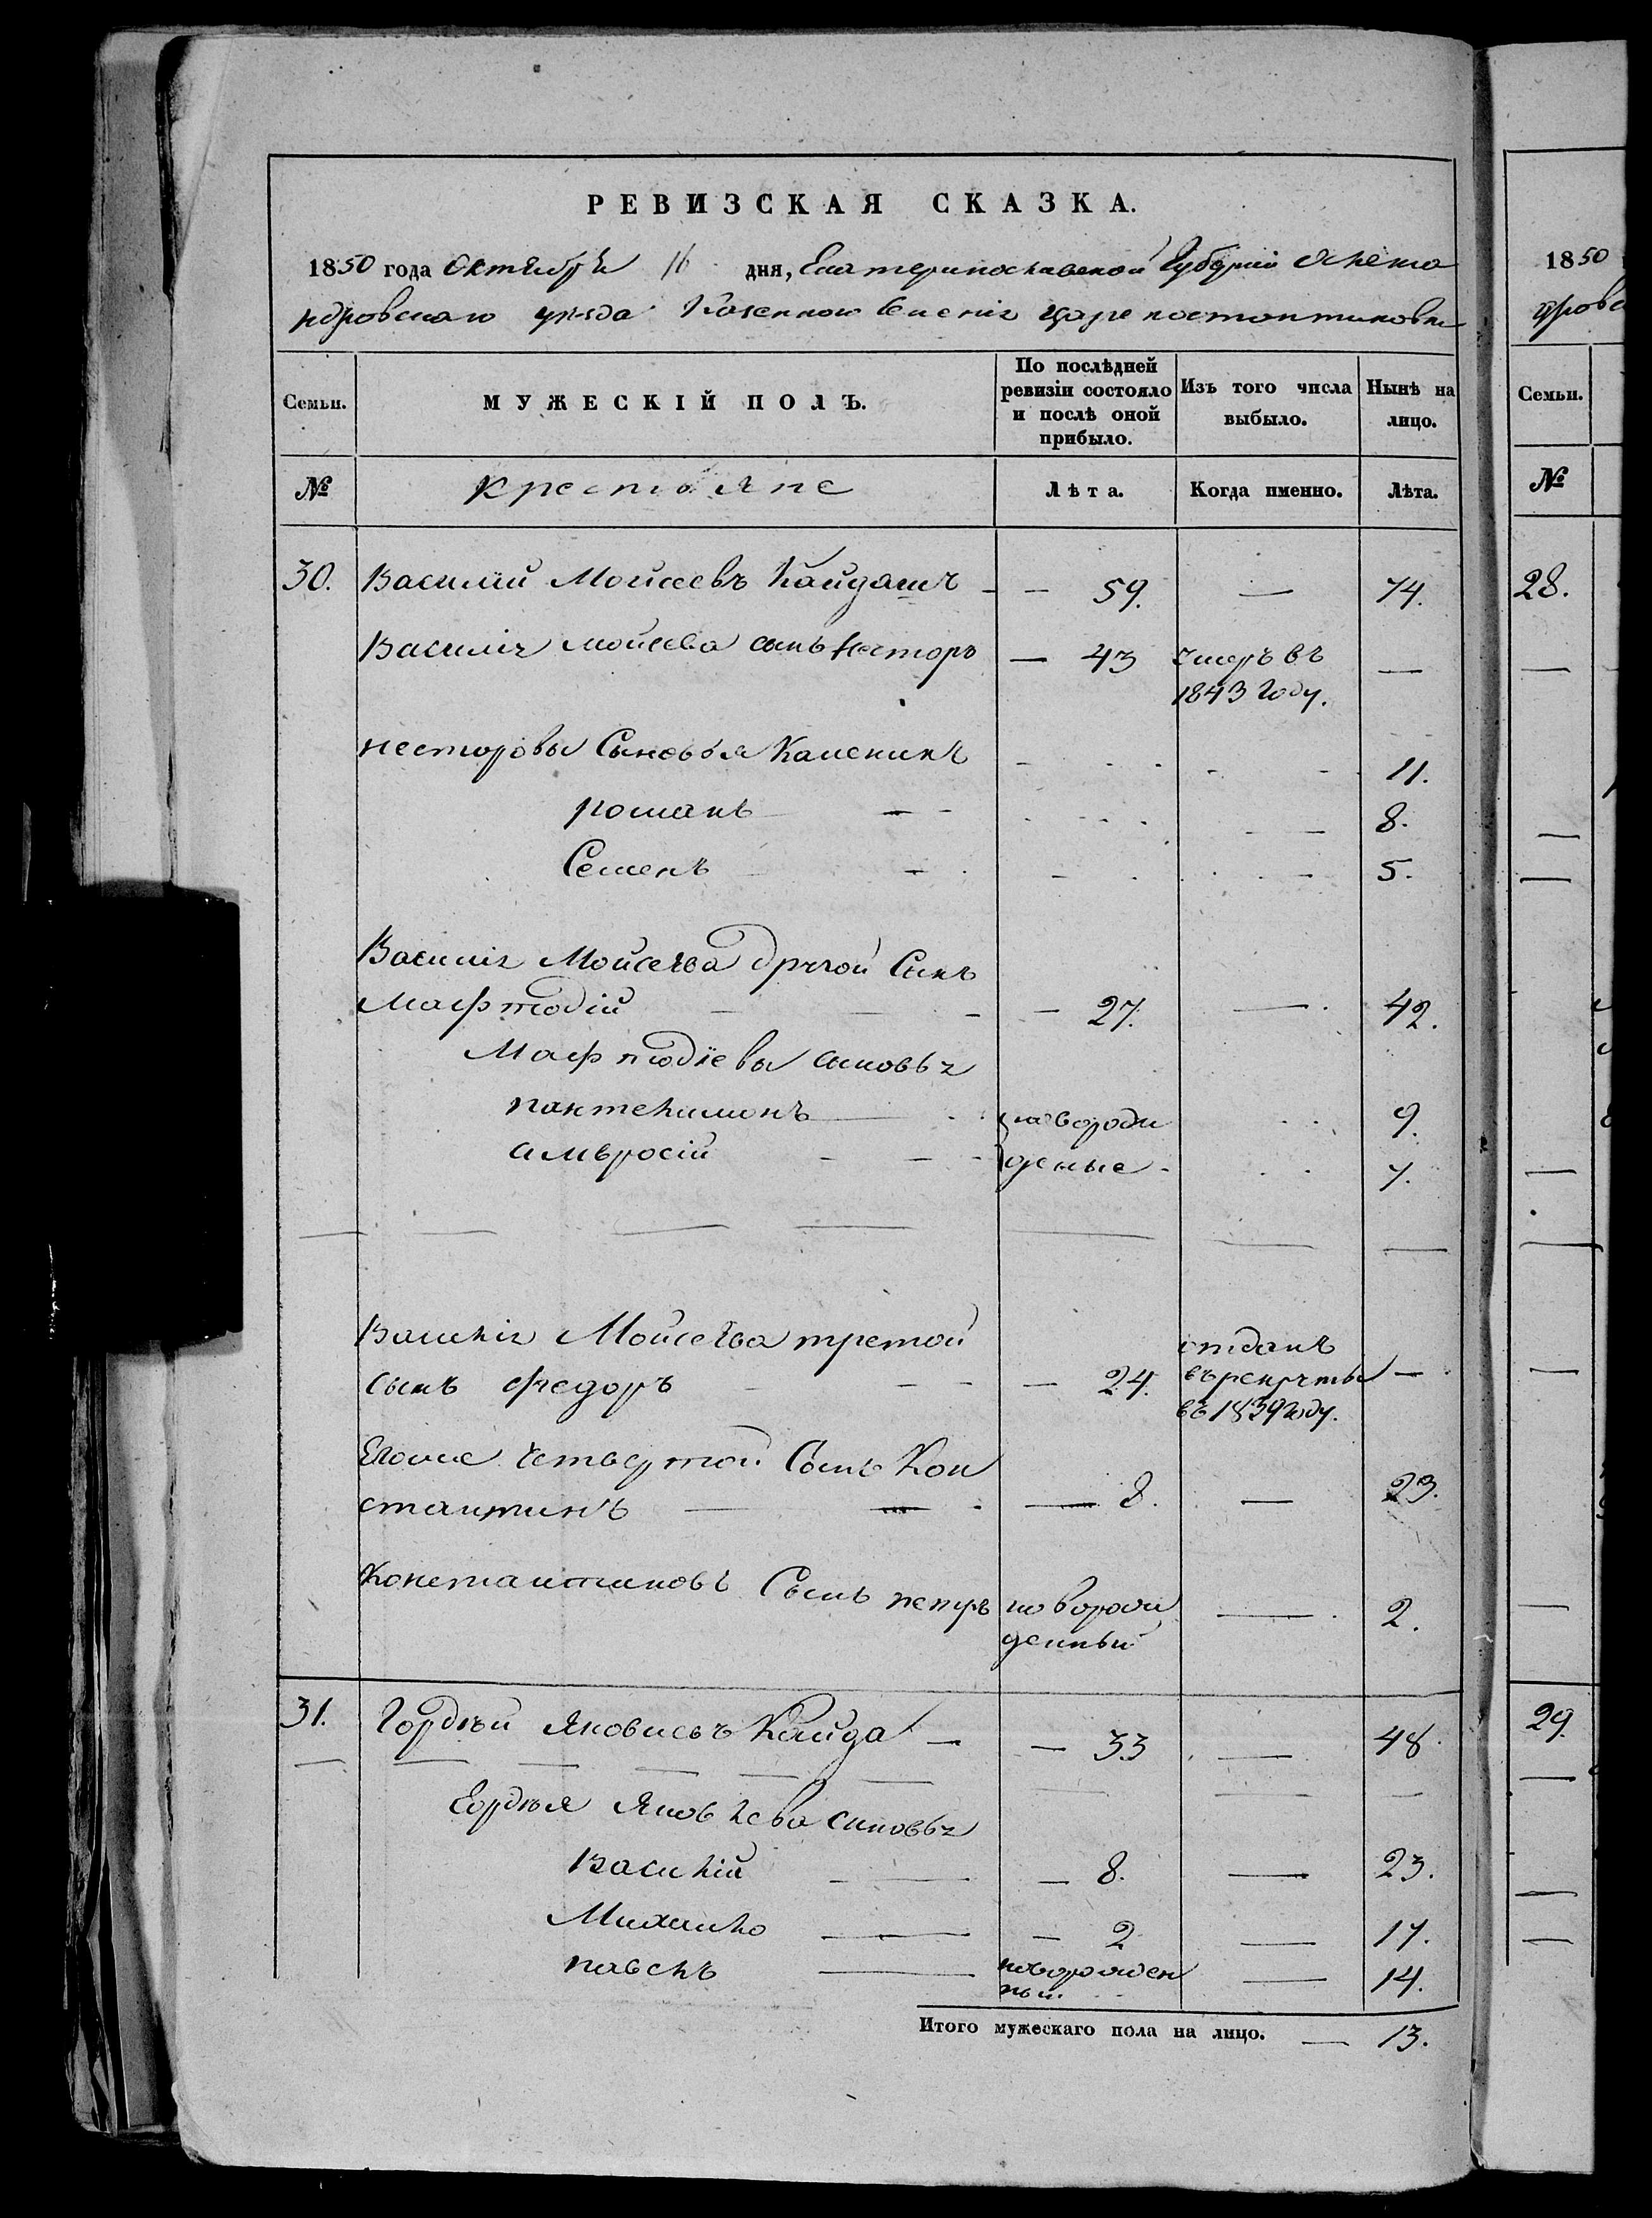 РЕВИЗСКАЯ СКАЗКА.
1850 года Октября 16 дня, Екатеринославской Губерніи Алекса
ндровскаго уезда Казенного Селенія Царе костонтиновки
Семьи.
МУЖЕСКІЙ ПОЛЪ.
По послѣдней ревизіи состояло и послѣ оной прибыло.
Изъ того числа выбыло.
Нынѣ на лицо.
№ крестьяне Лѣта. Когда именно. Лѣта.
30. Василий Моисеевъ Кайдашъ - - 59. — 74.
Василія мойсева сынъ Несторъ — 43 Умеръ въ —
1843 Году.
несторовы Сыновья Каленикъ 11.
романъ 8.
Семенъ 5.
Василія Мойсеева другой Сынъ
Мафтодій - 27. — 42.
Мафтодіевы сыновья
пантелимонъ новорож 9.
амвросій деные 7.
Василія Мойсеева третой отданъ
сынъ федоръ — 24. въ рекруты —
въ 1839 году.
Егоже Четвертой Сынъ Кон
стантинъ — 8. — 23.
Константиновъ Сынъ петръ новорож — 2.
денный
31. Гордѣй Яковлевъ Кайда — — 33 — 48
Гордѣя Яковлева сыновья
Василій — 8. — 23.
Михайло — 2 — 17.
павелъ новорожден — 14.
ный.
Итого мужескаго пола на лицо. — 13.
1850
Семьи.
№
28.
29.